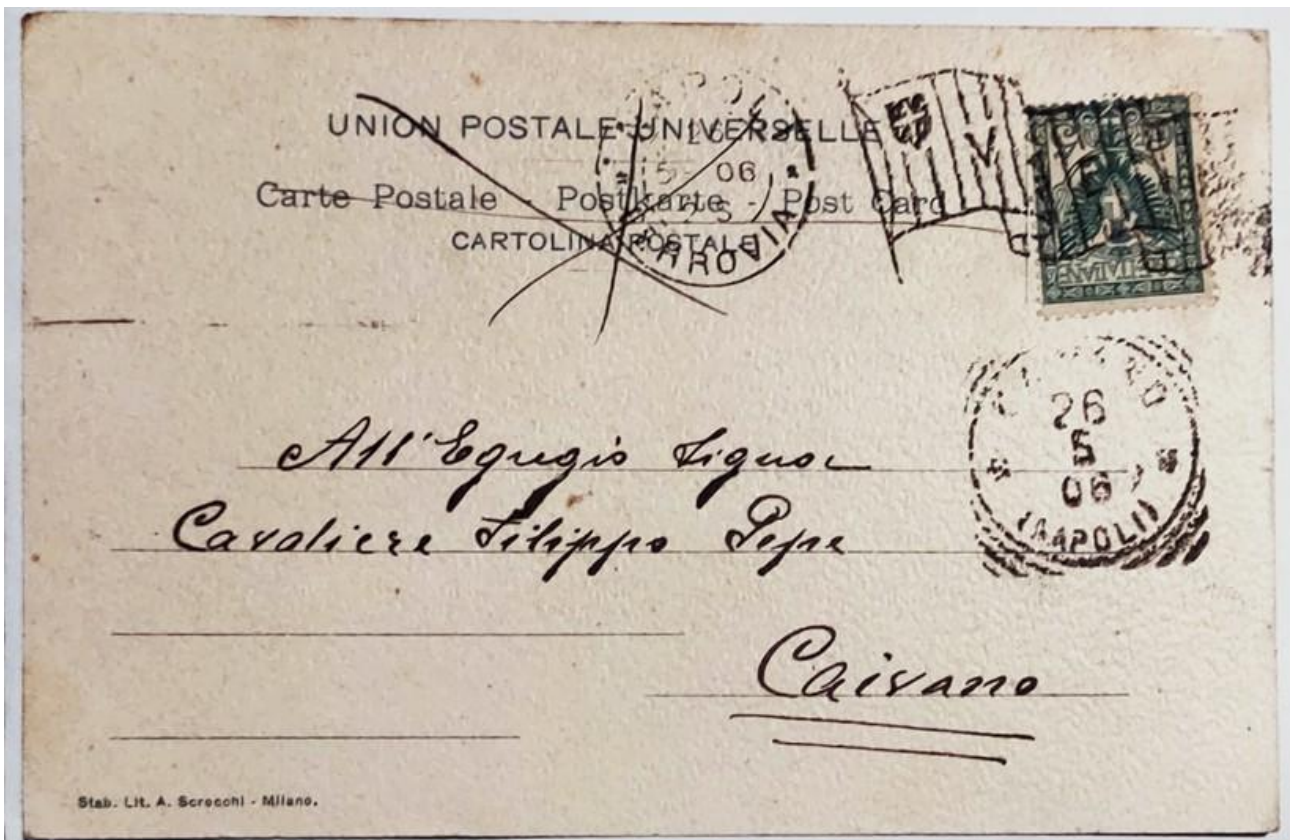 UNION POSTALE UNIVERSELLE
Carte Postale - Postkarte - Post Card
CARTOLINA POSTALE
26
5 06
V
ITALIANE
26
5
06
(NAPOLI)
All'Egregio Signor
Cavaliere Filippo Pepe
Caivano
Stab. Lit. A. Scrocchi - Milano.